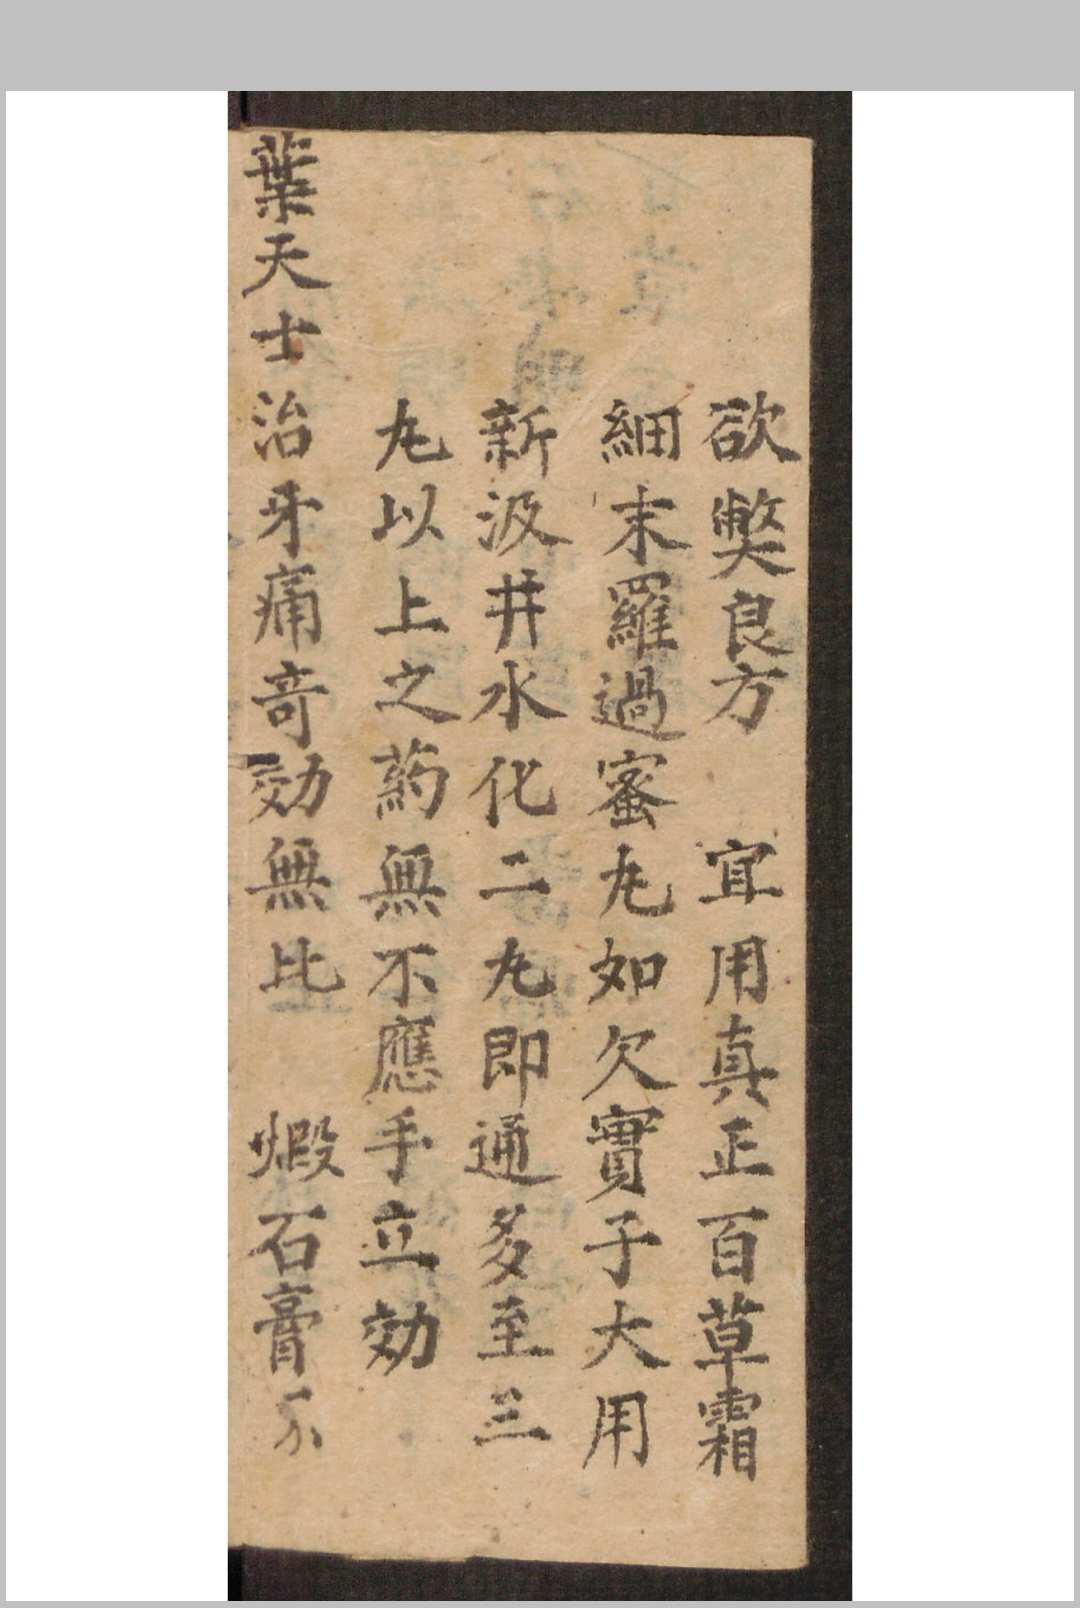 欲獘良方　宜用真正百草霜
細末羅過蜜丸如欠實子大用
新汲井水化二丸即通多至三
丸以上之葯無不應手立効
葉天士治牙痛竒効無比　煆石膏不